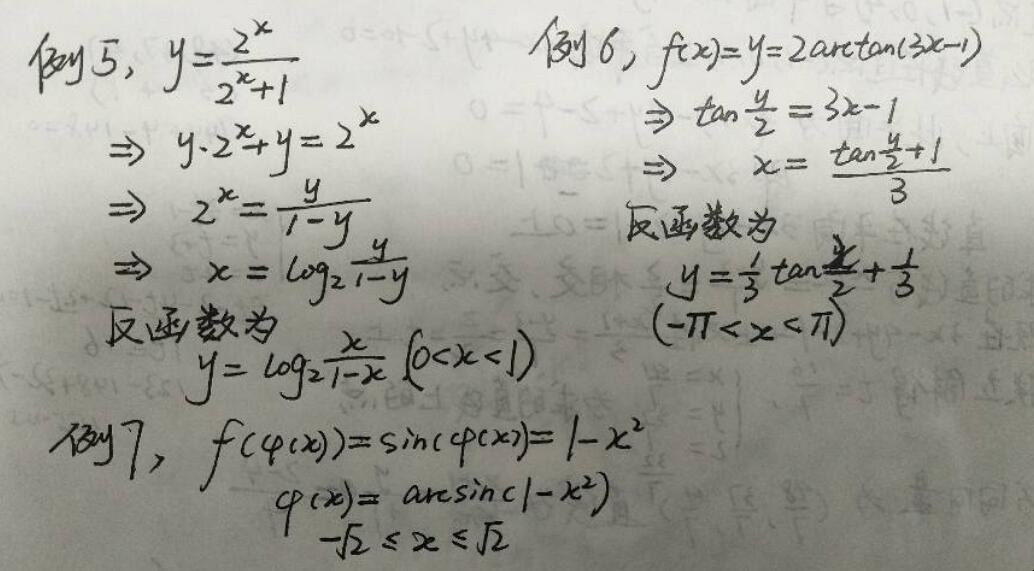 例5, y=\frac{2^x}{2^x+1}
⇒ y·2^x+y=2^x
⇒ 2^x=\frac{y}{1-y}
⇒ x=log_2\frac{y}{1-y}
反函数为
y=log_2\frac{x}{1-x} (0<x<1)
例6, f(x)=y=2arctan(3x-1)
⇒ tan\frac{y}{2}=3x-1
⇒ x=\frac{tan\frac{y}{2}+1}{3}
反函数为
y=\frac{1}{3}tan\frac{x}{2}+\frac{1}{3}
(-π<x<π)
例7, f(φ(x))=sin(φ(x))=1-x^2
φ(x)=arcsin(1-x^2)
-√2≤x≤√2